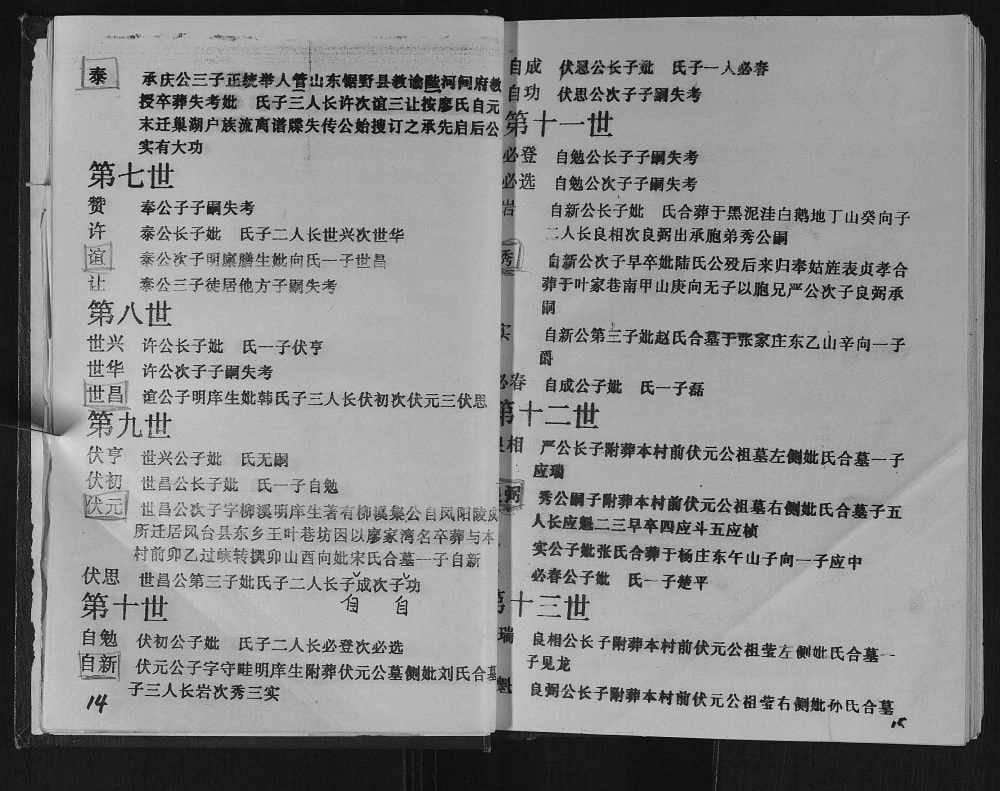 泰 承庆公三子正统举人管山东锯野县教谕陞河间府教
授卒葬失考妣 氏子三人长许次谊三让按廖氏自元
末迁巢湖户族流离谱牒失传公始搜订之承先启后公
实有大功
第七世
赞 奉公子子嗣失考
许 泰公长子妣 氏子二人长世兴次世华
谊 泰公次子明廪膳生妣向氏一子世昌
让 泰公三子徒居他方子嗣失考
第八世
世兴 许公长子妣 氏一子伏亨
世华 许公次子子嗣失考
世昌 谊公子明庠生妣韩氏子三人长伏初次伏元三伏思
第九世
伏亨 世兴公子妣 氏无嗣
伏初 世昌公长子妣 氏一子自勉
伏元 世昌公次子字柳溪明庠生著有柳溪集公自凤阳陵
所迁居凤台县东乡王叶巷坊因以廖家湾名卒葬与本
村前卯乙过峡转撰卯山酉向妣宋氏合墓一子自新
伏思 世昌公第三子妣氏子二人长子成次子功
自 自
第十世
自勉 伏初公子妣 氏子二人长必登次必选
自新 伏元公子字守畦明庠生附葬伏元公墓侧妣刘氏合墓
子三人长岩次秀三实
14
自成 伏恩公长子妣 氏子一人必春
自功 伏思公次子子嗣失考
第十一世
必登 自勉公长子子嗣失考
必选 自勉公次子子嗣失考
岩 自新公长子妣 氏合葬于黑泥洼白鹅地丁山癸向子
二人长良相次良弼出承胞弟秀公嗣
秀 自新公次子早卒妣陆氏公殁后来归奉姑旌表贞孝合
葬于叶家巷南甲山庚向无子以胞兄严公次子良弼承
嗣
实 自新公第三子妣赵氏合墓于张家庄东乙山辛向一子
爵
必春 自成公子妣 氏一子磊
第十二世
良相 严公长子附葬本村前伏元公祖墓左侧妣氏合墓一子
应瑞
弼 秀公嗣子附葬本村前伏元公祖墓右侧妣氏合墓子五
人长应魁二三早卒四应斗五应桢
实公子妣张氏合葬于杨庄东午山子向一子应中
必春公子妣 氏一子楚平
第十三世
瑞 良相公长子附葬本村前伏元公祖莹左侧妣氏合墓一
子见龙
魁 良弼公长子附葬本村前伏元公祖莹右侧妣孙氏合墓
15